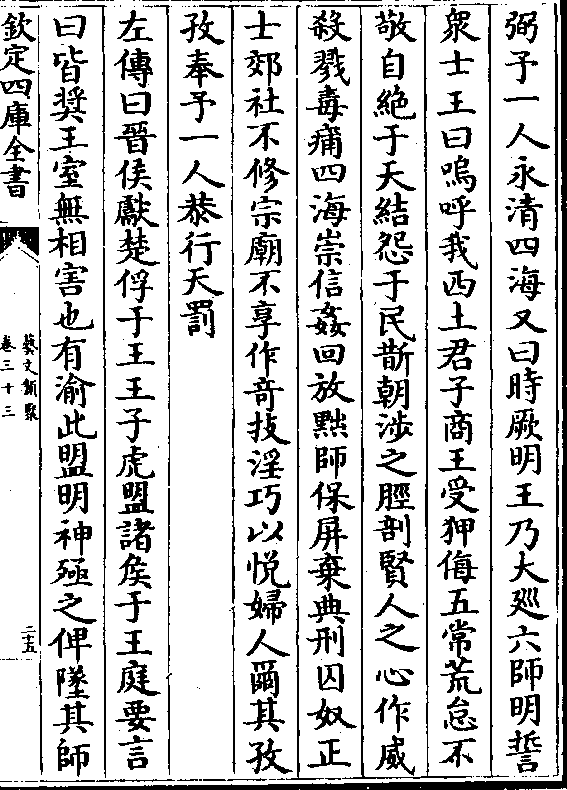 弼予一人永清四海又曰時厥明王乃大廵六師明誓
衆士王曰嗚呼我西土君子商王受狎侮五常荒怠不
敬自絶于天結怨于民斮朝涉之脛剖賢人之心作威
殺戮毒痡四海崇信姦回放黜師保屏棄典刑囚奴正
士郊社不修宗廟不享作竒技淫巧以悦婦人爾其孜
孜奉予一人恭行天罰
左傳曰晉侯獻楚俘于王王子虎盟諸侯于王庭要言
曰皆奬王室無相害也有渝此盟明神殛之俾墜其師
欽定四庫全書
藝文類聚
卷三十三
二十五